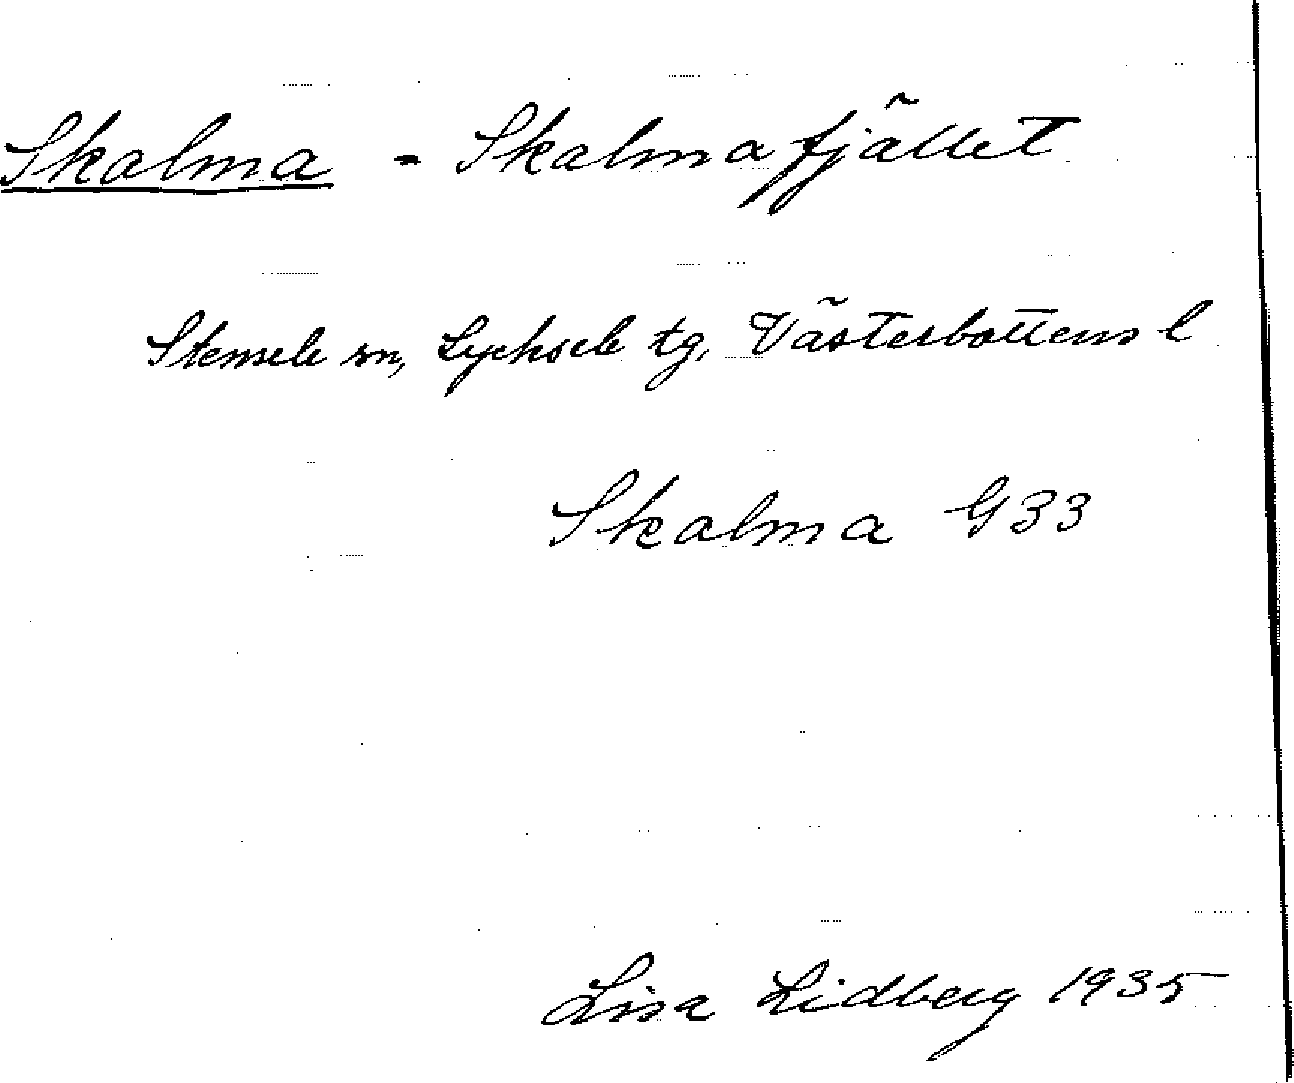 Skalma - Skalmafjället
Stensele sn, Lycksele tg, Västerbottens l
Skalma G33
Lisa Lidberg 1935